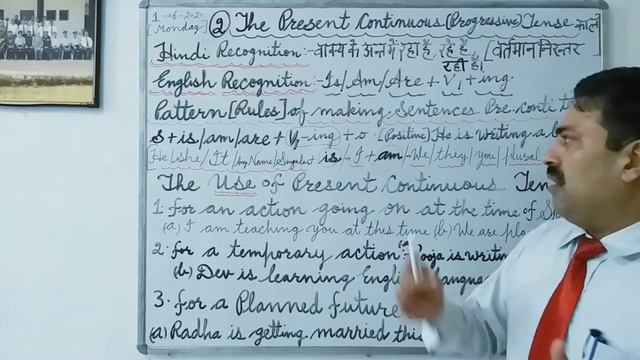 1-06-2020
[Monday]
② The Present Continuous (Progressive) Tense काल
Hindi Recognition:- वाक्य के अन्त में रहा है, रहे हैं, [वर्तमान निरन्तर
रही है।
English Recognition:- Is/Am/Are + V1 + ing.
Pattern [Rules] of making Sentences Pre. conti
S + is/am/are + V1 - ing + o. [Positive] He is writing a
He/She/It/Any Name/Singular is. I + am We/they/you/plural
The Use of Present Continuous Ten
1. for an action going on at the time of
(a) I am teaching you at this time (b) We are
2. for a temporary action:- Pooja is
(b) Dev is learning English
3. for a Planned future
(a) Radha is getting married this